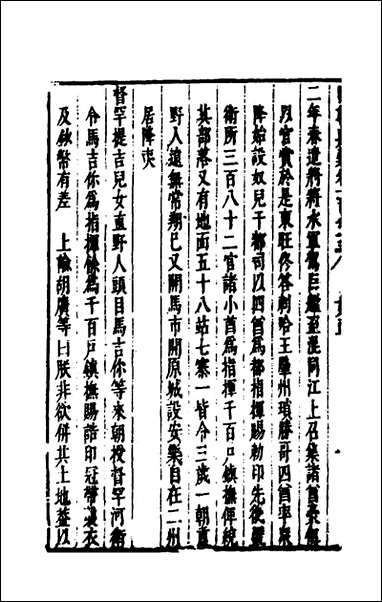 二年春遣將將水軍駕巨艦至混同江上召集諸酋豪縻
以官賞於是東旺佟答剌哈王肇州瑣勝哥四酋率眾
降始設奴兒干都司以四酋為都指揮賜勑印先後置
衛所三百八十二官諸小酋為指揮千百戶鎮撫俾統
其部落又有地面五十八站七寨一皆令三歲一朝貢
野人遠無常期已又開馬市開原城設安樂自在二州
居降夷
督罕提吉兒女直野人頭目馬吉你等來朝授督罕河衛
令馬吉你為指揮餘為千百戶鎮撫賜誥印冠帶襲衣
及鈔幣有差 上諭胡廣等曰朕非欲併其土地蓋以